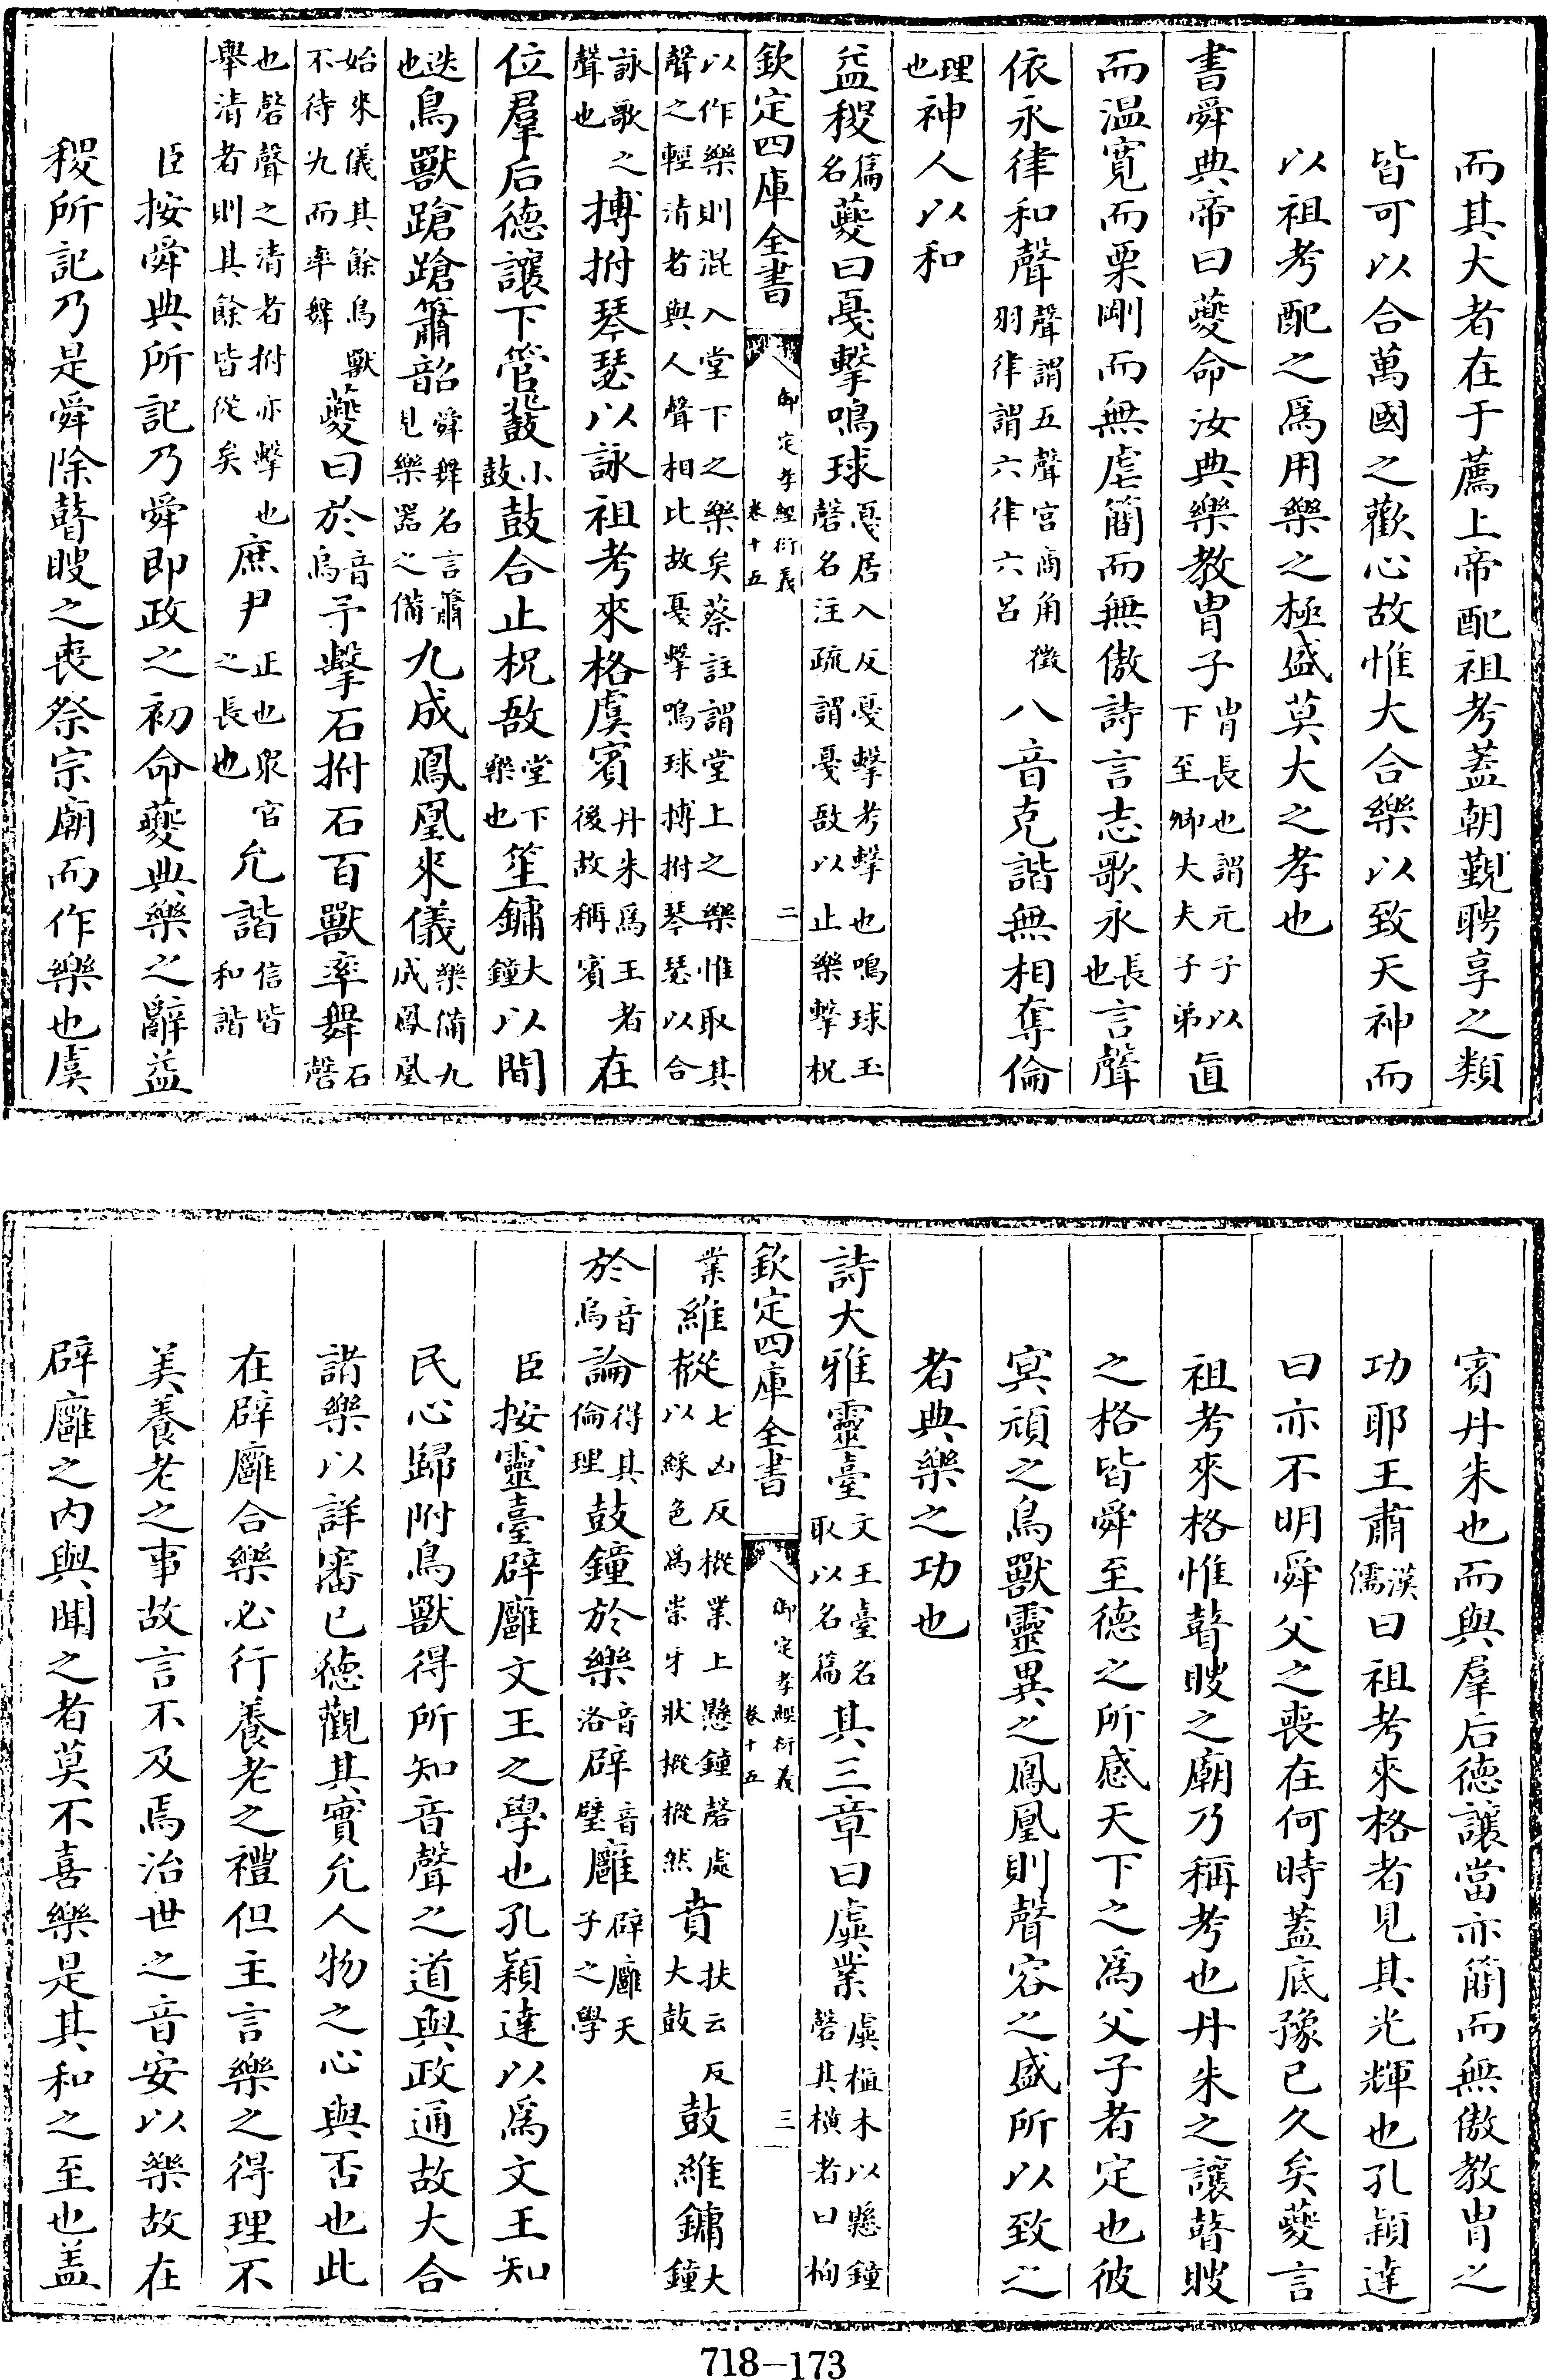 而其大者在于薦上帝配祖考蓋朝覲聘享之類
皆可以合萬國之歡心故惟大合樂以致天神而
以祖考配之爲用樂之極盛莫大之孝也
書舜典帝曰夔命汝典樂教胄子胄長也謂元子以下至卿大夫子弟直
而温寛而栗剛而無虐簡而無傲詩言志歌永長也言聲
依永律和聲聲謂五聲宫商角徵羽律謂六律六吕八音克諧無相奪倫
理也神人以和
益稷篇名夔曰戛擊鳴球戛居八反戛擊考擊也鳴球玉磬名注疏謂戛敔以止樂擊柷
欽定四庫全書
御定孝經衍義
卷十五
二
以作樂則混入堂下之樂矣蔡註謂堂上之樂惟取其聲之輕清者與人聲相比故戛擊鳴球搏拊琴瑟以合
詠歌之聲也搏拊琴瑟以詠祖考來格虞賓丹朱爲王者後故稱賓在
位羣后德讓下管鼗小鼓鼓合止柷敔堂下樂也笙鏞大鐘以間
迭也鳥獸蹌蹌簫韶舜舞名言簫見樂器之備九成鳳凰來儀樂備九成鳳凰
始來儀其餘鳥獸不待九而率舞夔曰於音烏予擊石拊石百獸率舞石磬
也磬聲之清者拊亦擊也舉清者則其餘皆從矣庶尹正也衆官之長也允諧信皆和諧
臣按舜典所記乃舜即政之初命夔典樂之辭益
稷所記乃是舜除瞽瞍之喪祭宗廟而作樂也虞
賓丹朱也而與羣后德讓當亦簡而無傲教胄之
功耶王肅漢儒曰祖考來格者見其光輝也孔穎達
曰亦不明舜父之喪在何時蓋底豫已久矣夔言
祖考來格惟瞽瞍之廟乃稱考也丹朱之讓瞽瞍
之格皆舜至德之所感天下之爲父子者定也彼
冥頑之鳥獸靈異之鳳凰則聲容之盛所以致之
者典樂之功也
詩大雅靈臺文王臺名取以名篇其三章曰虡業虡植木以懸鐘磬其横者曰栒
欽定四庫全書
御定孝經衍義
卷十五
三
業維樅七凶反樅業上懸鐘磬處以綵色爲崇牙狀樅樅然賁扶云反大鼓鼓維鏞大鐘
於音烏論得其倫理鼓鐘於樂音洛辟音璧廱辟廱天子之學
臣按靈臺辟廱文王之學也孔穎達以爲文王知
民心歸附鳥獸得所知音聲之道與政通故大合
諸樂以詳審已德觀其實允人物之心與否也此
在辟廱合樂必行養老之禮但主言樂之得理不
美養老之事故言不及焉治世之音安以樂故在
辟廱之内與聞之者莫不喜樂是其和之至也蓋
718-173